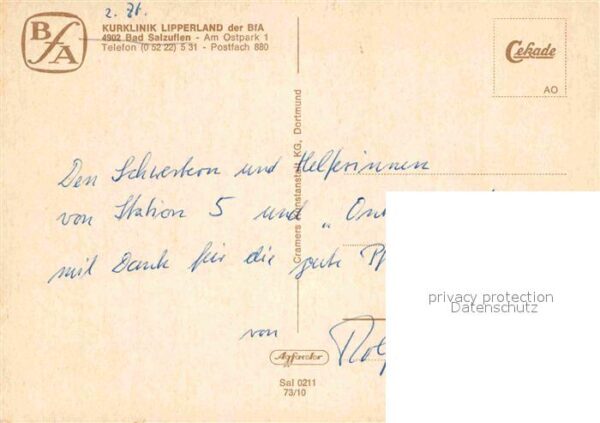 z. Zt.
BfA
KURKLINIK LIPPERLAND der BfA
4902 Bad Salzuflen - Am Ostpark 1
Telefon (0 52 22) 5 31 - Postfach 880
Cekade
AO
Cramers Kunstanstalt KG, Dortmund
Den Schwestern und Helferinnen
von Station 5 und „
mit Dank für die gute
von
privacy protection
Datenschutz
Agfacolor
Sal 0211
73/10